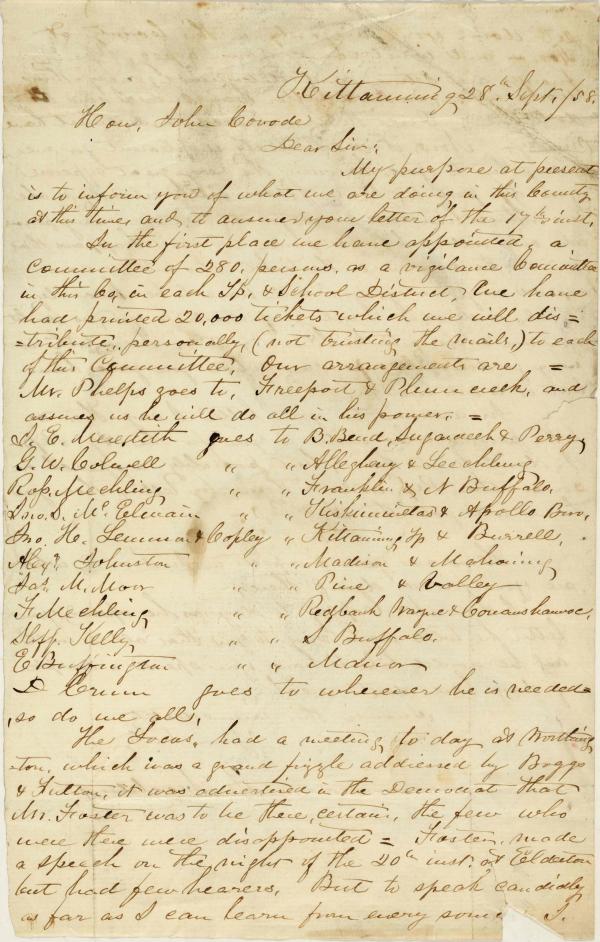 Kittanning 28th Sept. /58.
Hon. John Covode
Dear Sir,
My purpose at present
is to inform you of what we are doing in this County
at this time, and to answer your letter of the 17th inst.
In the first place we have appointed, a
Committee of 280, persons, as a vigilance Committee
in this Co, in each Tp. & School District, We have
had printed 20,000 tickets which we will dis=
=tribute, personally, (not trusting the mails,) to each
of this Committee, Our arrangements are =
Mr. Phelps goes to, Freeport & Plumcreek, and
assures us he will do all in his power. =
S. E. Meredith goes to B. Bend, Sugarcreek & Perry,
G. W. Colwell " " Allegheny & Leechburg
Robt. Mechling " " Franklin & N Buffalo,
Mc Elwain " " Kiskiminetas & Apollo Boro,
Jno. K. Lemmon & Copley " " Kittanning Tp & Burrell,
Alexr. Johnston " " Madison & Mahoning
Jas. M. Moor " " Pine & Valley
F Mechling " " Redbank Wayne & Cowanshannoc,
Shff. Kelly " " S Buffalo.
E Buffington " " Manor
D Crum goes to wherever he is needed=
so do we all,
The Locos, had a meeting to day at Worthing
ton, which was a grand fizzle addressed by Boggs
& Fulton, it was advertised in the Democrat that
Mr. Foster was to be there, certain, the few who
were there were disappointed = Foster, made
a speech on the night of the 20th inst. at Elderton
but had few hearers, But to speak candidly
as far as I can learn from every I.